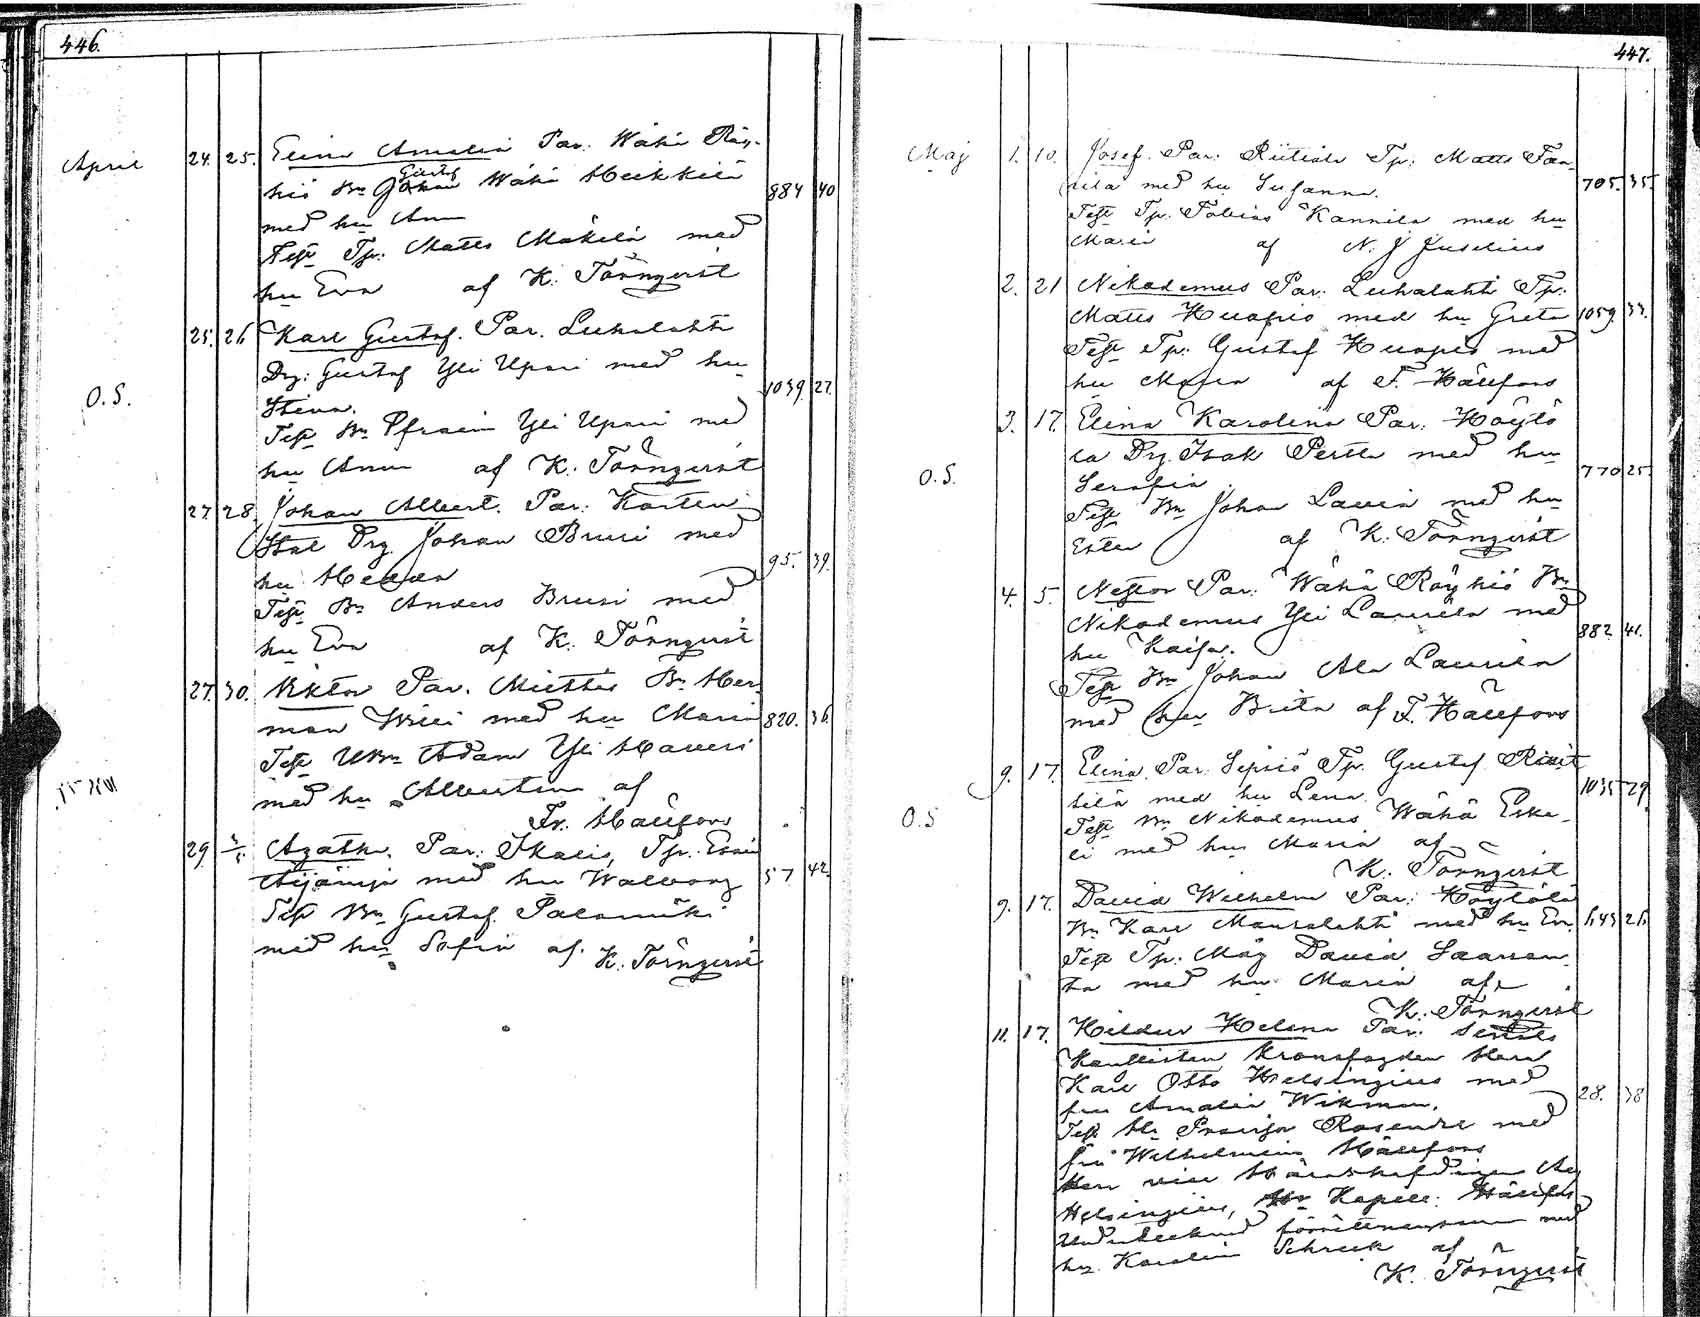 446.
April 24. 25. Elina Amalia Par. Wähä Röy-
hiö Bn Gustaf Johan Wähä Heikkilä 884 40
med hu Anna
Test Tp. Matts Mäkelä med
hu Eva af K. Törnqvist
25. 26 Karl Gustaf. Par. Luhalahti
Drg: Gustaf Yli Upari med hu 1039 27.
O.S.
Stina.
Test Bn Efraim Yli Upari med
hu Anna af K. Törnqvist
27 28. Johan Albert. Par. Karten
Stat Drg Johan Brusi med 95. 39.
hu Hedda
Test Bn Anders Brusi med
hu Eva af K. Törnqvist
27. 30. Viktor Par. Miettis Bn Her-
man Willi med hu Maria 820. 36.
Test UBn Adam Yli Haveri
med hu Albertina af
Fr. Hällfors
29. 3/5 Agatha. Par. Ikalis, Tp.
Äijänsja med hu Walborg 57 42.
Test Bn Gustaf Palomäki
med hu Sofia af. K. Törnqvist
447.
Maj 1. 10. Josef. Par. Riitiala Tp: Matts Fan-
nila med hu Susanna. 705. 35.
Test Tp. Tobias Kannila med hu
Maria af N. J Juselius
2. 21 Nikodemus Par. Luhalahti Tp:
Matts Kuapio med hu Greta 1059. 33.
Test Tp: Gustaf Kuapio med
hu Maria af F. Hällfors
3. 17. Elina Karolina Par. Höytö
la Drg. Isak Pertti med hu 770 25.
O.S. Serafia
Test Bn Johan Lauri med hu
Ester af K. Törnqvist
4. 5. Nestor Par. Wähä Röyhiö Bn
Nikodemus Yli Laurila med 882. 41.
hu Kaisa.
Test Bn Johan Ala Laurila
med hu Brita af F. Hällfors
9. 17. Elina. Par. Sipsiö Tp. Gustaf
tilä med hu Lena. 1035 29.
O.S Test Bn Nikodemus Wähä Eske-
li med hu Maria af
K. Törnqvist
9. 17. David Wilhelm Par: Höytölä
Bn Karl Mansolahti med hu Eva 643 26.
Test Tp: Måg David Saaran-
ta med hu Maria af
K. Törnqvist
11. 17. Hildur Helena Par.
Kanslisten Kronofogden Herr
Karl Otto Helsingius med 28. 38
fru Amalia Wikman.
Test Hr Provisor Rosendal med
fru Wilhelmina Hällfors
Herr vice Häradshöfdingen
Helsingius, Hr Kapell: Hällfors
Undertecknad med
hu Karolin Schreck af
K. Törnqvist